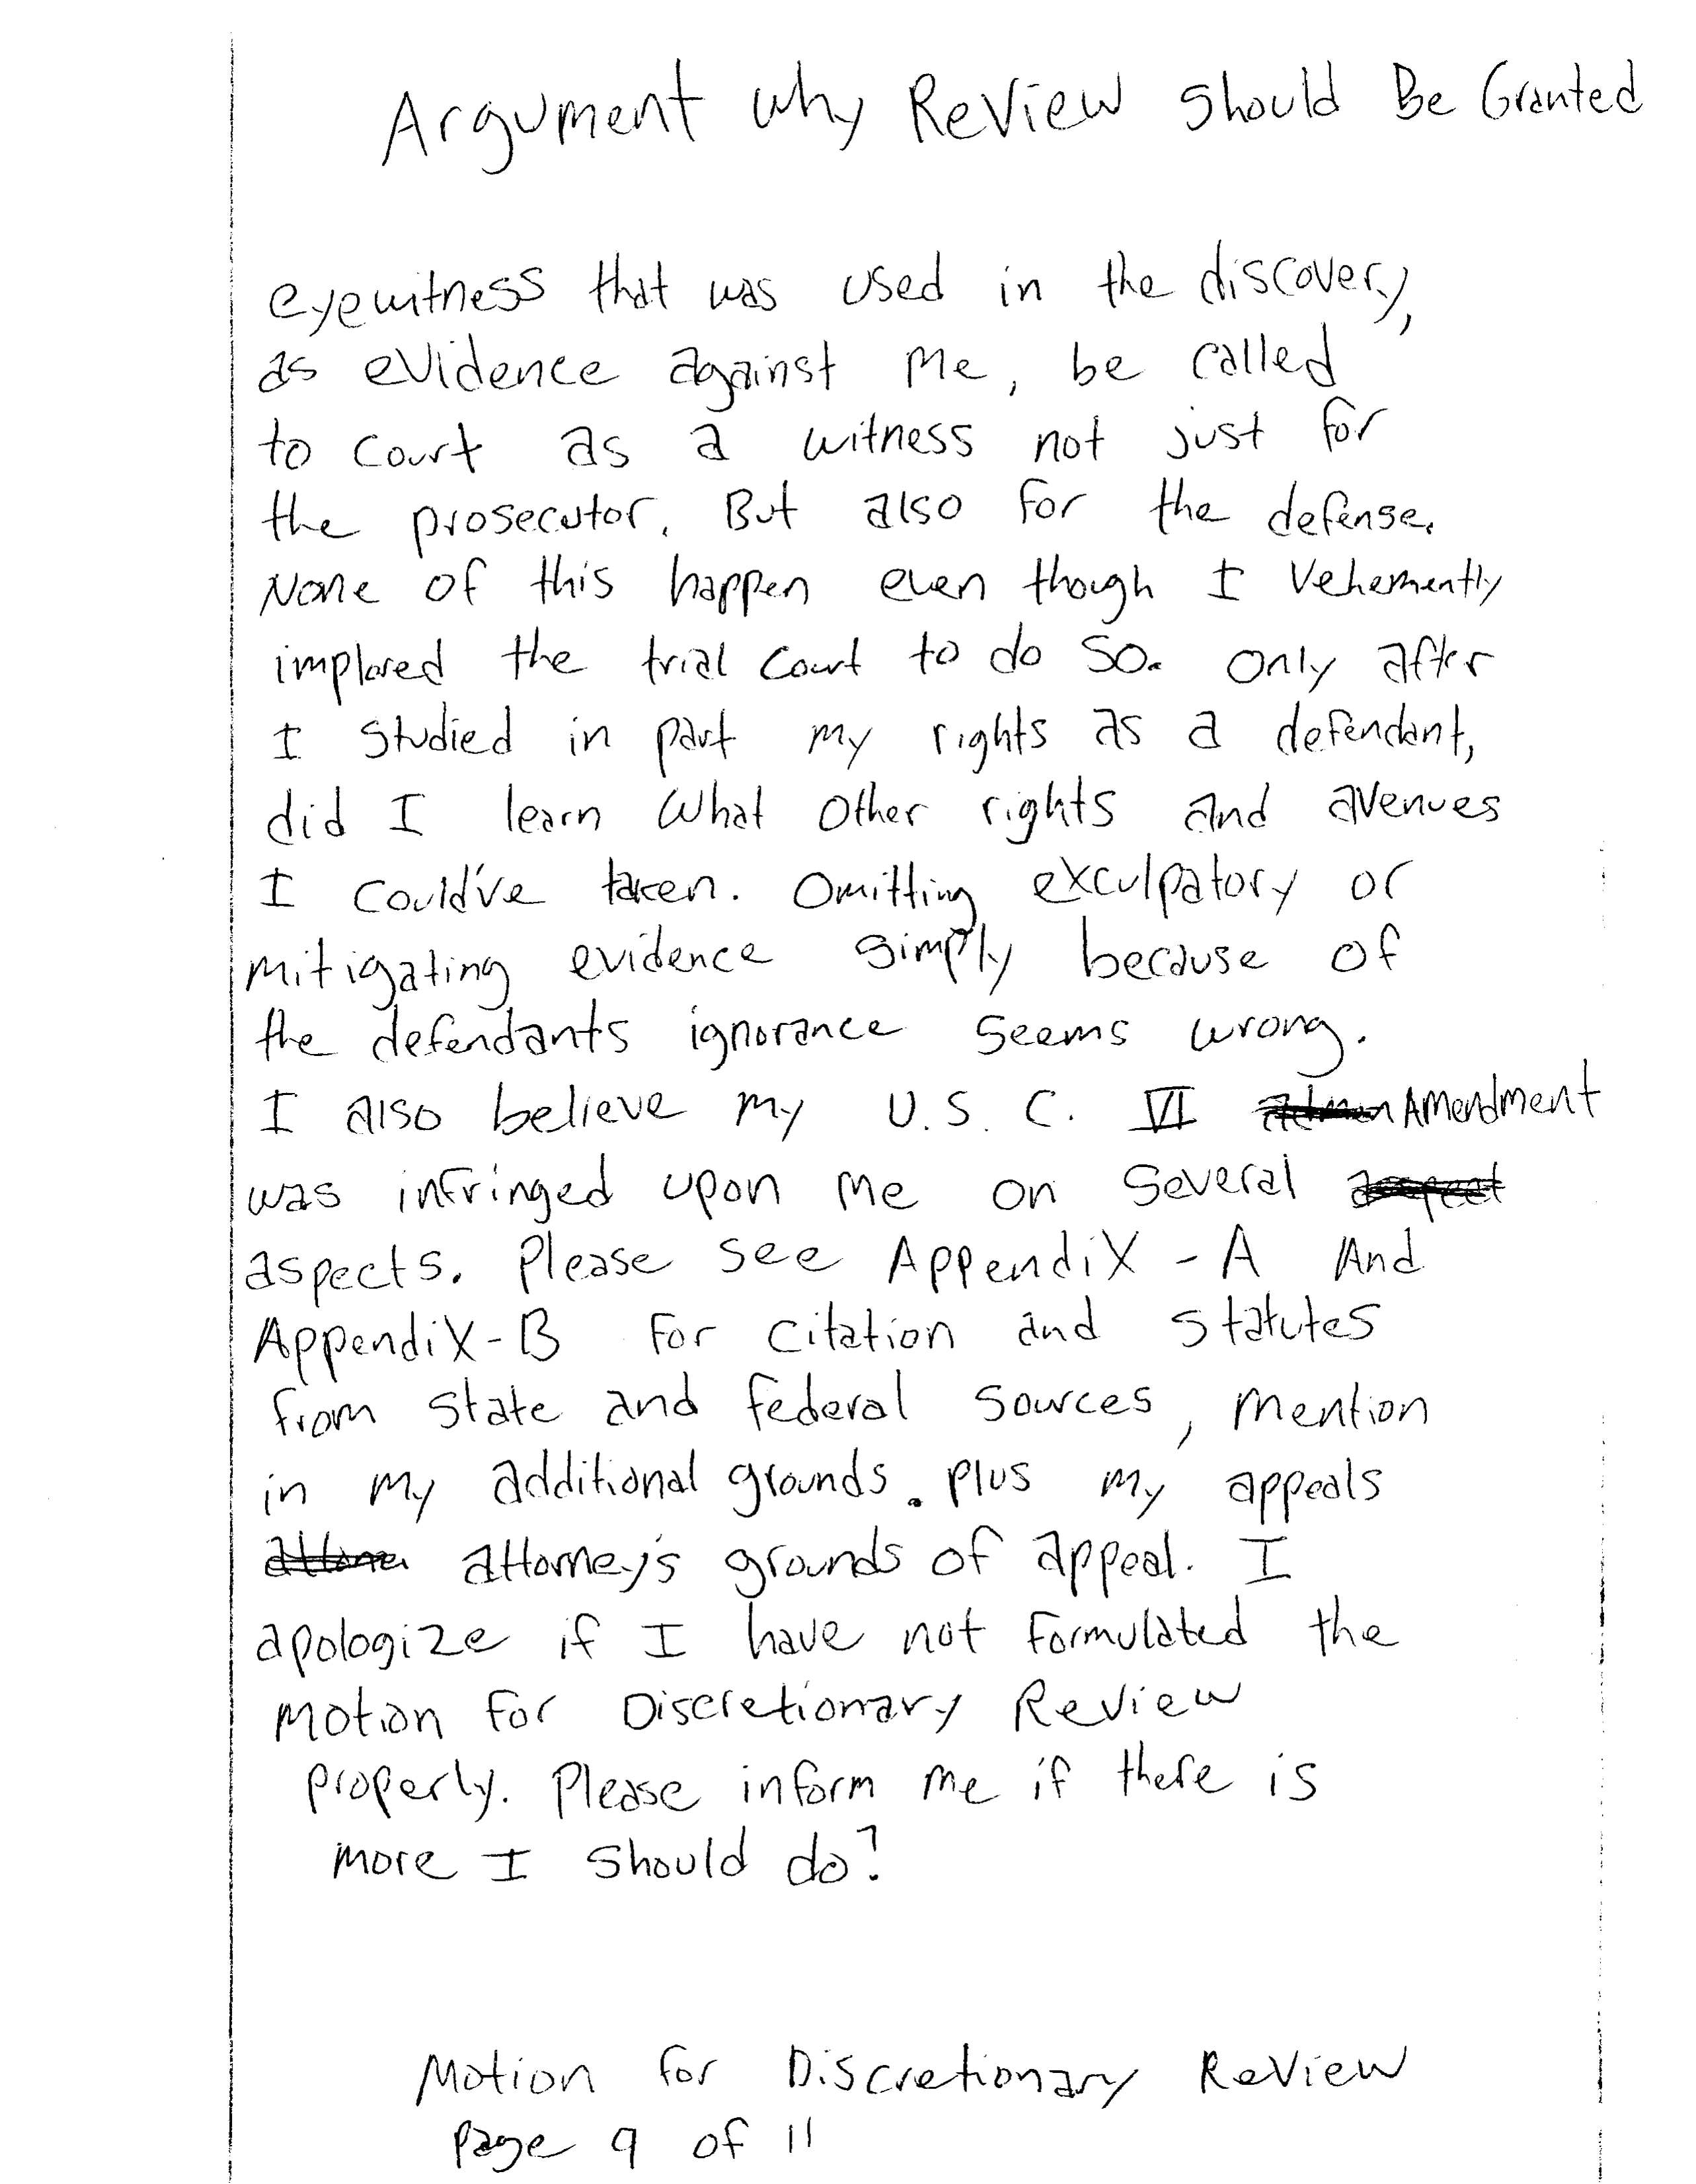 Argument why Review should Be Granted
eyewitness that was used in the discovery,
as evidence against me, be called
to court as a witness not just for
the prosecutor. But also for the defense.
None of this happen even though I vehemently
implored the trial court to do so. only after
I studied in part my rights as a defendant,
did I learn what other rights and avenues
I could've taken. Omitting exculpatory or
mitigating evidence simply because of
the defendants ignorance seems wrong.
I also believe my U.S.C. VI Amendment
was infringed upon me on several
aspects. Please see Appendix-A And
Appendix-B for citation and statutes
from state and federal sources, mention
in my additional grounds. Plus my appeals
attorney's grounds of appeal. I
apologize if I have not formulated the
Motion for Discretionary Review
properly. Please inform me if there is
more I should do?
Motion for Discretionary Review
Page 9 of 11